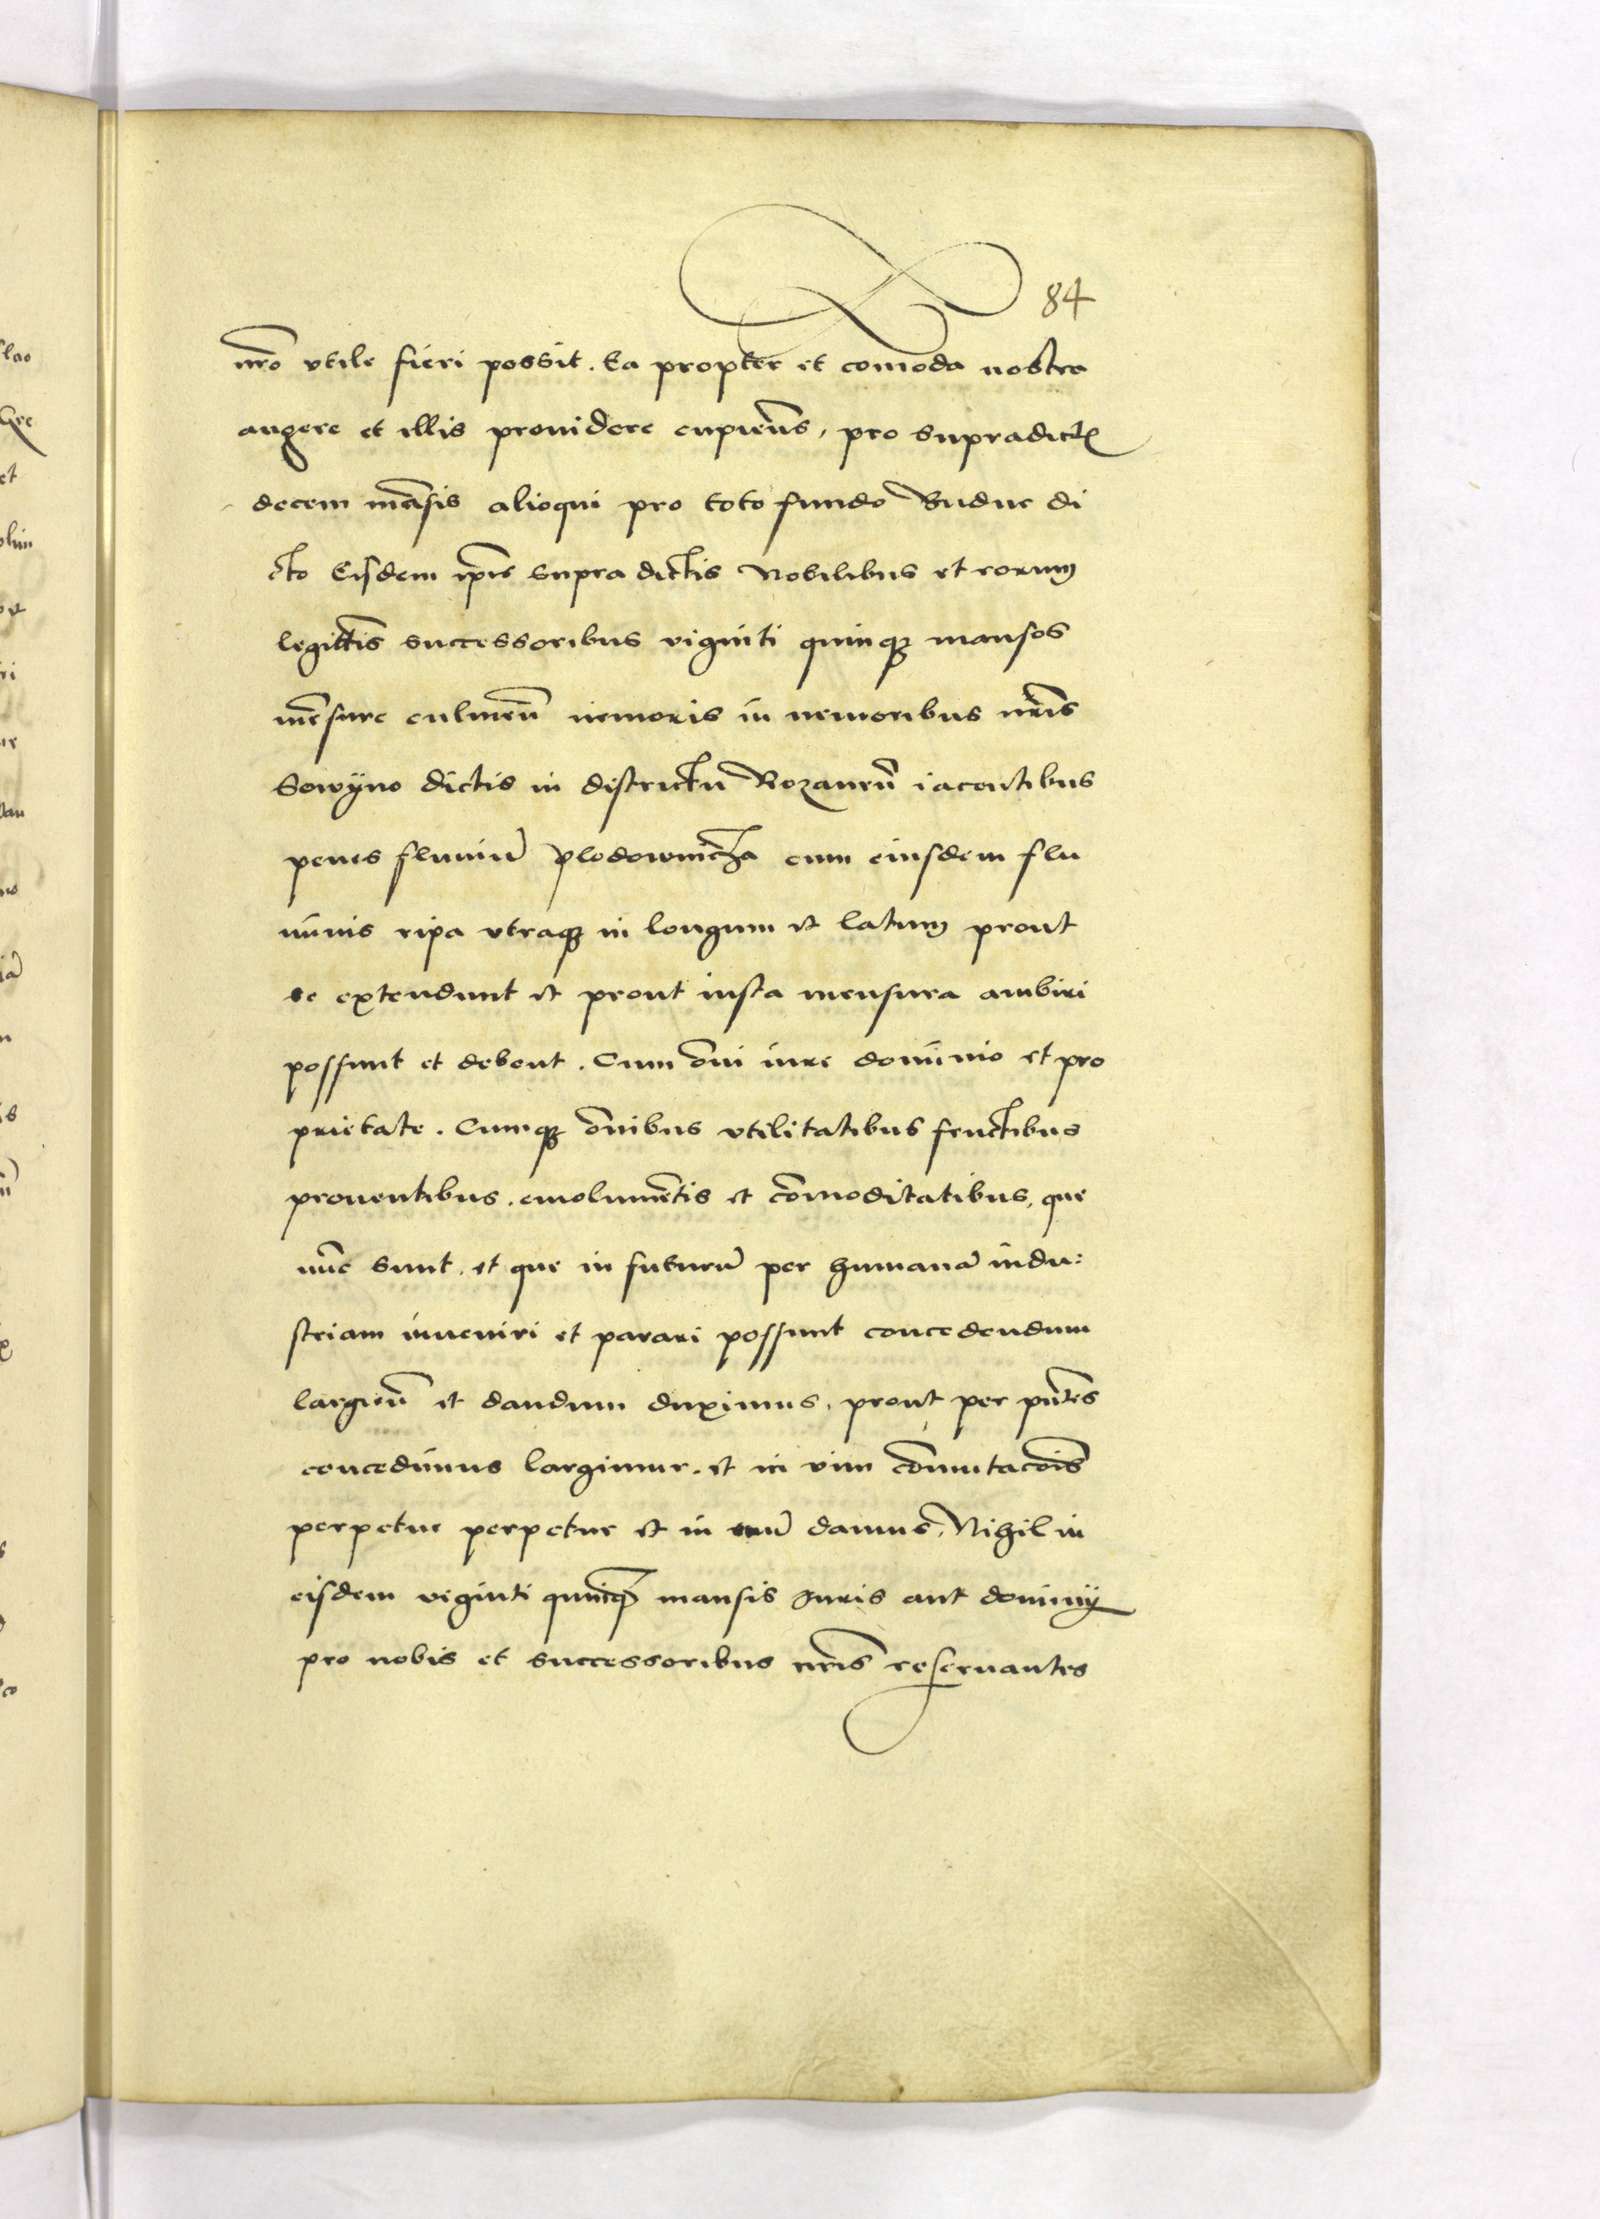 84
nr̄o vtile fieri possit. Ea propter et comoda nostra
augere et illis prouidere cupien̄s, pro supradict̄
decem mān̄sis alioqui pro toto fundo Budne di
cto Eisdem ip̄is supra dictis Nobilibus et eorum
legitt̄is successoribus viginti quinq̨ mansos
mēnsure culmen̄ nemoris in nemoribus nr̄is
Sowÿno dictis in districtu Rozanen̄ iacentibus
penes fluuiū Plodownicza cum eiusdem flu
uinis ripa vtraq̨ in longum et latum prout
se extendunt et prout iusta mensura ambiri
possunt et debent. Cum om̄i iure dominio et pro
prietate. Cumq̨ om̄ibus vtilitatibus fructibus
prouentibus. emolumētis et com̄oditatibus, que
nūc sunt. et que in futurū per humanā indu:
striam inueniri et parari possunt concedendum
largien̄ et dandum duximus, prout per pn̄tes
concedimus largimur. et in vim com̄utacōis
perpetue perpetue et in euū damus, Nihil in
eisdem viginti quinq̨ mansis Juris aut dominij
pro nobis et successoribus nr̄is reseruantes